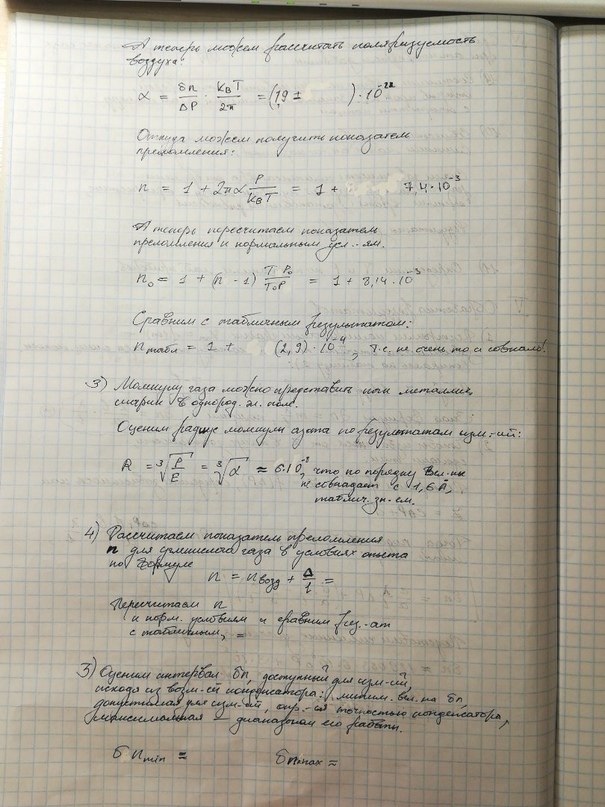 А теперь можем рассчитать поляризуемость
воздуха:
α = δn/ΔP · k_BT/2π = (1,9 ± ) · 10⁻²²
Откуда можем получить показатель
преломления:
n = 1 + 2πα P/k_BT = 1 + 7,4·10⁻³
А теперь пересчитаем показатель
преломления к нормальным усл.-ям.
n₀ = 1 + (n - 1) T P₀/T₀P = 1 + 8,14·10⁻³
Сравним с табличным результатом:
n табл = 1 + (2,9)·10⁻⁴, т.е. не очень-то и совпало!
3) Молекулу газа можно представить как металлич.
шарик в однород. эл. поле.
Оценим радиус молекулы азота по результатам изм-ий:
R = ∛(P/E) = ∛α ≈ 6·10⁻⁸, что по порядку вел-ны
не совпадает с 1,6 Å,
таблич. зн-ем.
4) Рассчитаем показатель преломления
n для углекислого газа в условиях опыта
по формуле
n = n возд + Δ/l =
Пересчитаем n
к норм. условиям и сравним рез.-ат
с табличным, =
3) Оценим интервал δn, доступный для изм-ий,
исходя из возм-ей конденсатора: миним. вел.-на δn,
допустимая для изм-ий, опр.-ся точностью конденсатора,
максимальная – диапазоном его работы.
δ n min = δn max =